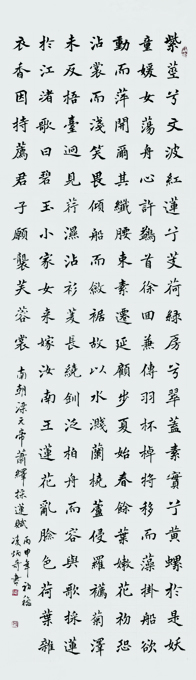 紫莖兮文波紅蓮兮芰荷綠房兮翠蓋素實兮黃螺於是妖
童媛女蕩舟心許鷁首徐回兼傳羽杯棹將移而藻掛船欲
動而萍開爾其纖腰束素遷延顧步夏始春餘葉嫩花初恐
沾裳而淺笑畏傾船而斂裾故以水濺蘭橈蘆侵羅襦菊澤
未反梧臺迥見荇濕沾衫菱長繞釧泛柏舟而容與歌採蓮
於江渚歌曰碧玉小家女來嫁汝南王蓮花亂臉色荷葉雜
衣香因持薦君子願襲芙蓉裳
南朝梁元帝蕭繹採蓮賦
丙申年初
炳奇書